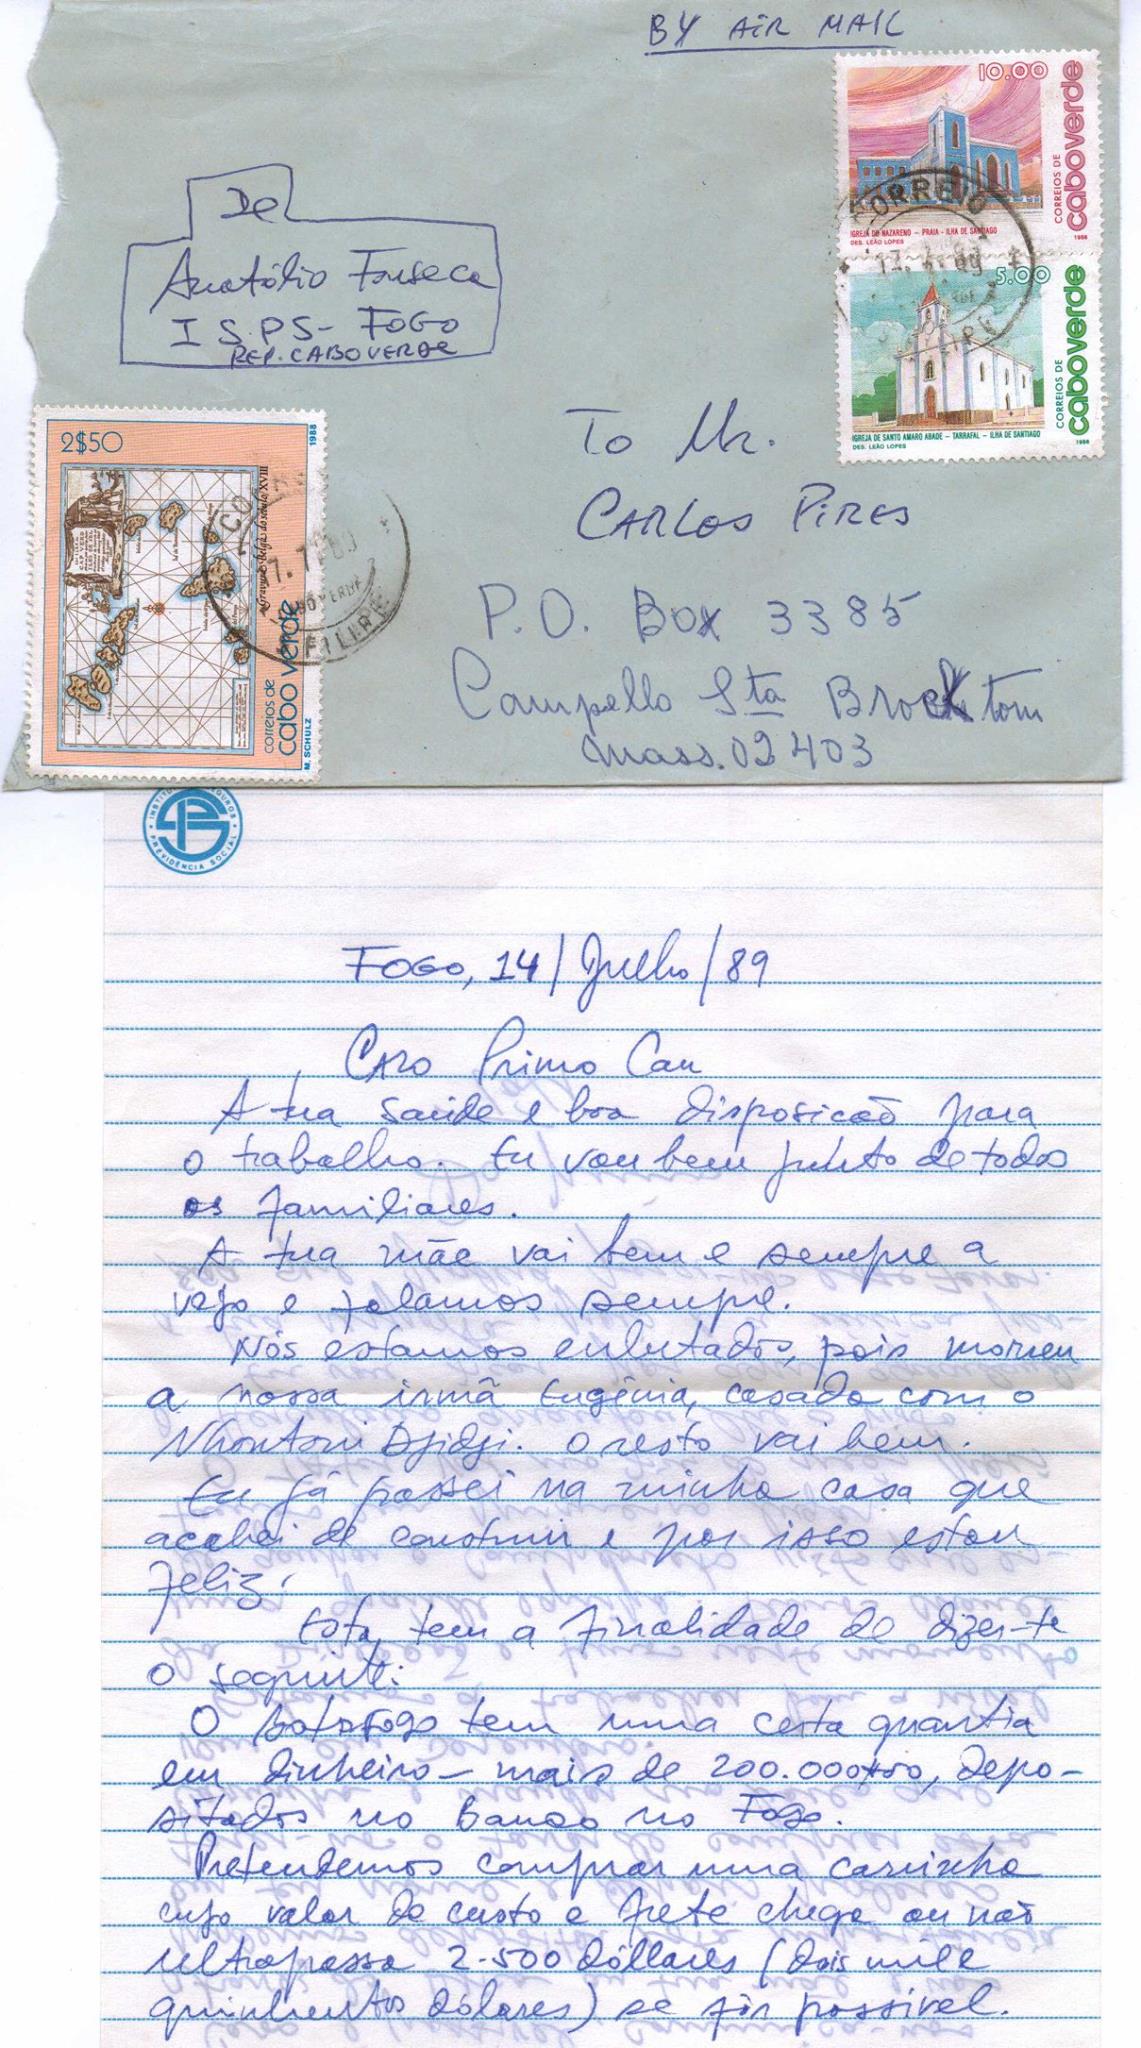 BY AIR MAIL
10.00
CORREIOS DE
caboverde
1988
IGREJA DO NAZARENO - PRAIA - ILHA DE SANTIAGO
DES. LEÃO LOPES
CORREIO
5.00
CORREIOS DE
caboverde
1988
IGREJA DE SANTO AMARO ABADE - TARRAFAL - ILHA DE SANTIAGO
DES. LEÃO LOPES
De
Anatólio Fonseca
I S.P.S- FOGO
REP. CABO VERDE
2$50
1988
Gravura Belga do século XVIII
correios de
cabo verde
M. SCHULZ
FILIPE
To Mr.
CARLOS PIRES
P.O. BOX 3385
Campello Sta Brockton
Mass. 02403
PREVIDÊNCIA SOCIAL
FOGO, 14/Julho/89
CARO Primo Cau
A tua saúde e boa disposição para
o trabalho. Eu vou bem junto de todos
os familiares.
A tua mãe vai bem e sempre a
vejo e falamos sempre.
Nós estamos enlutados, pois morreu
a nossa irmã Eugénia, casada com o
Djidji. O resto vai bem.
Eu já passei na minha casa que
acabei de construir e por isso estou
feliz.
Esta tem a finalidade de dizer-te
o seguinte:
O Botafogo tem uma certa quantia
em dinheiro - mais de 200.000$00, depo-
sitados no Banco no Fogo.
Pretendemos comprar uma carrinha
cujo valor de custo e frete chega ou não
ultrapassa 2.500 dóllares (dois mil e
quinhentos dólares) se fôr possível.